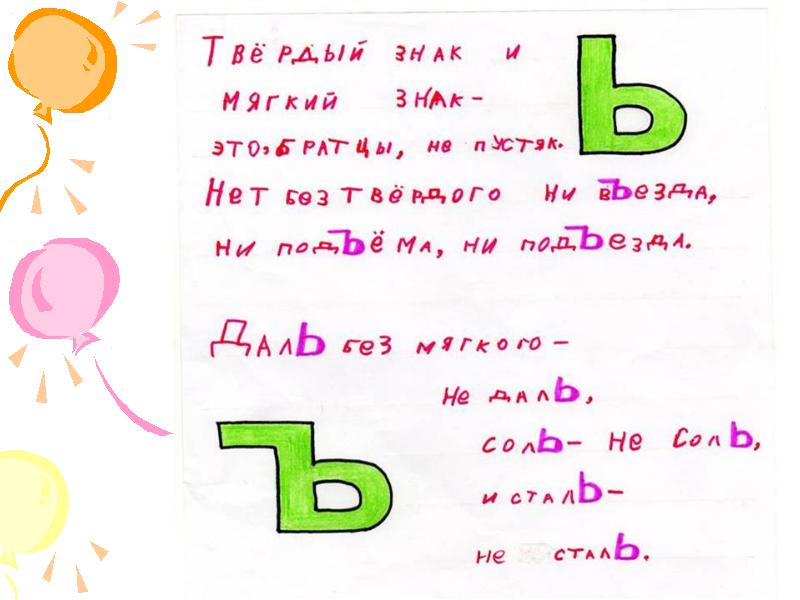 Твёрдый знак и
мягкий знак-
это, братцы, не пустяк.
Ь
Нет без твёрдого ни въезда,
ни подъёма, ни подъезда.
Даль без мягкого-
не даль,
соль- не соль,
и сталь-
не сталь.
Ъ